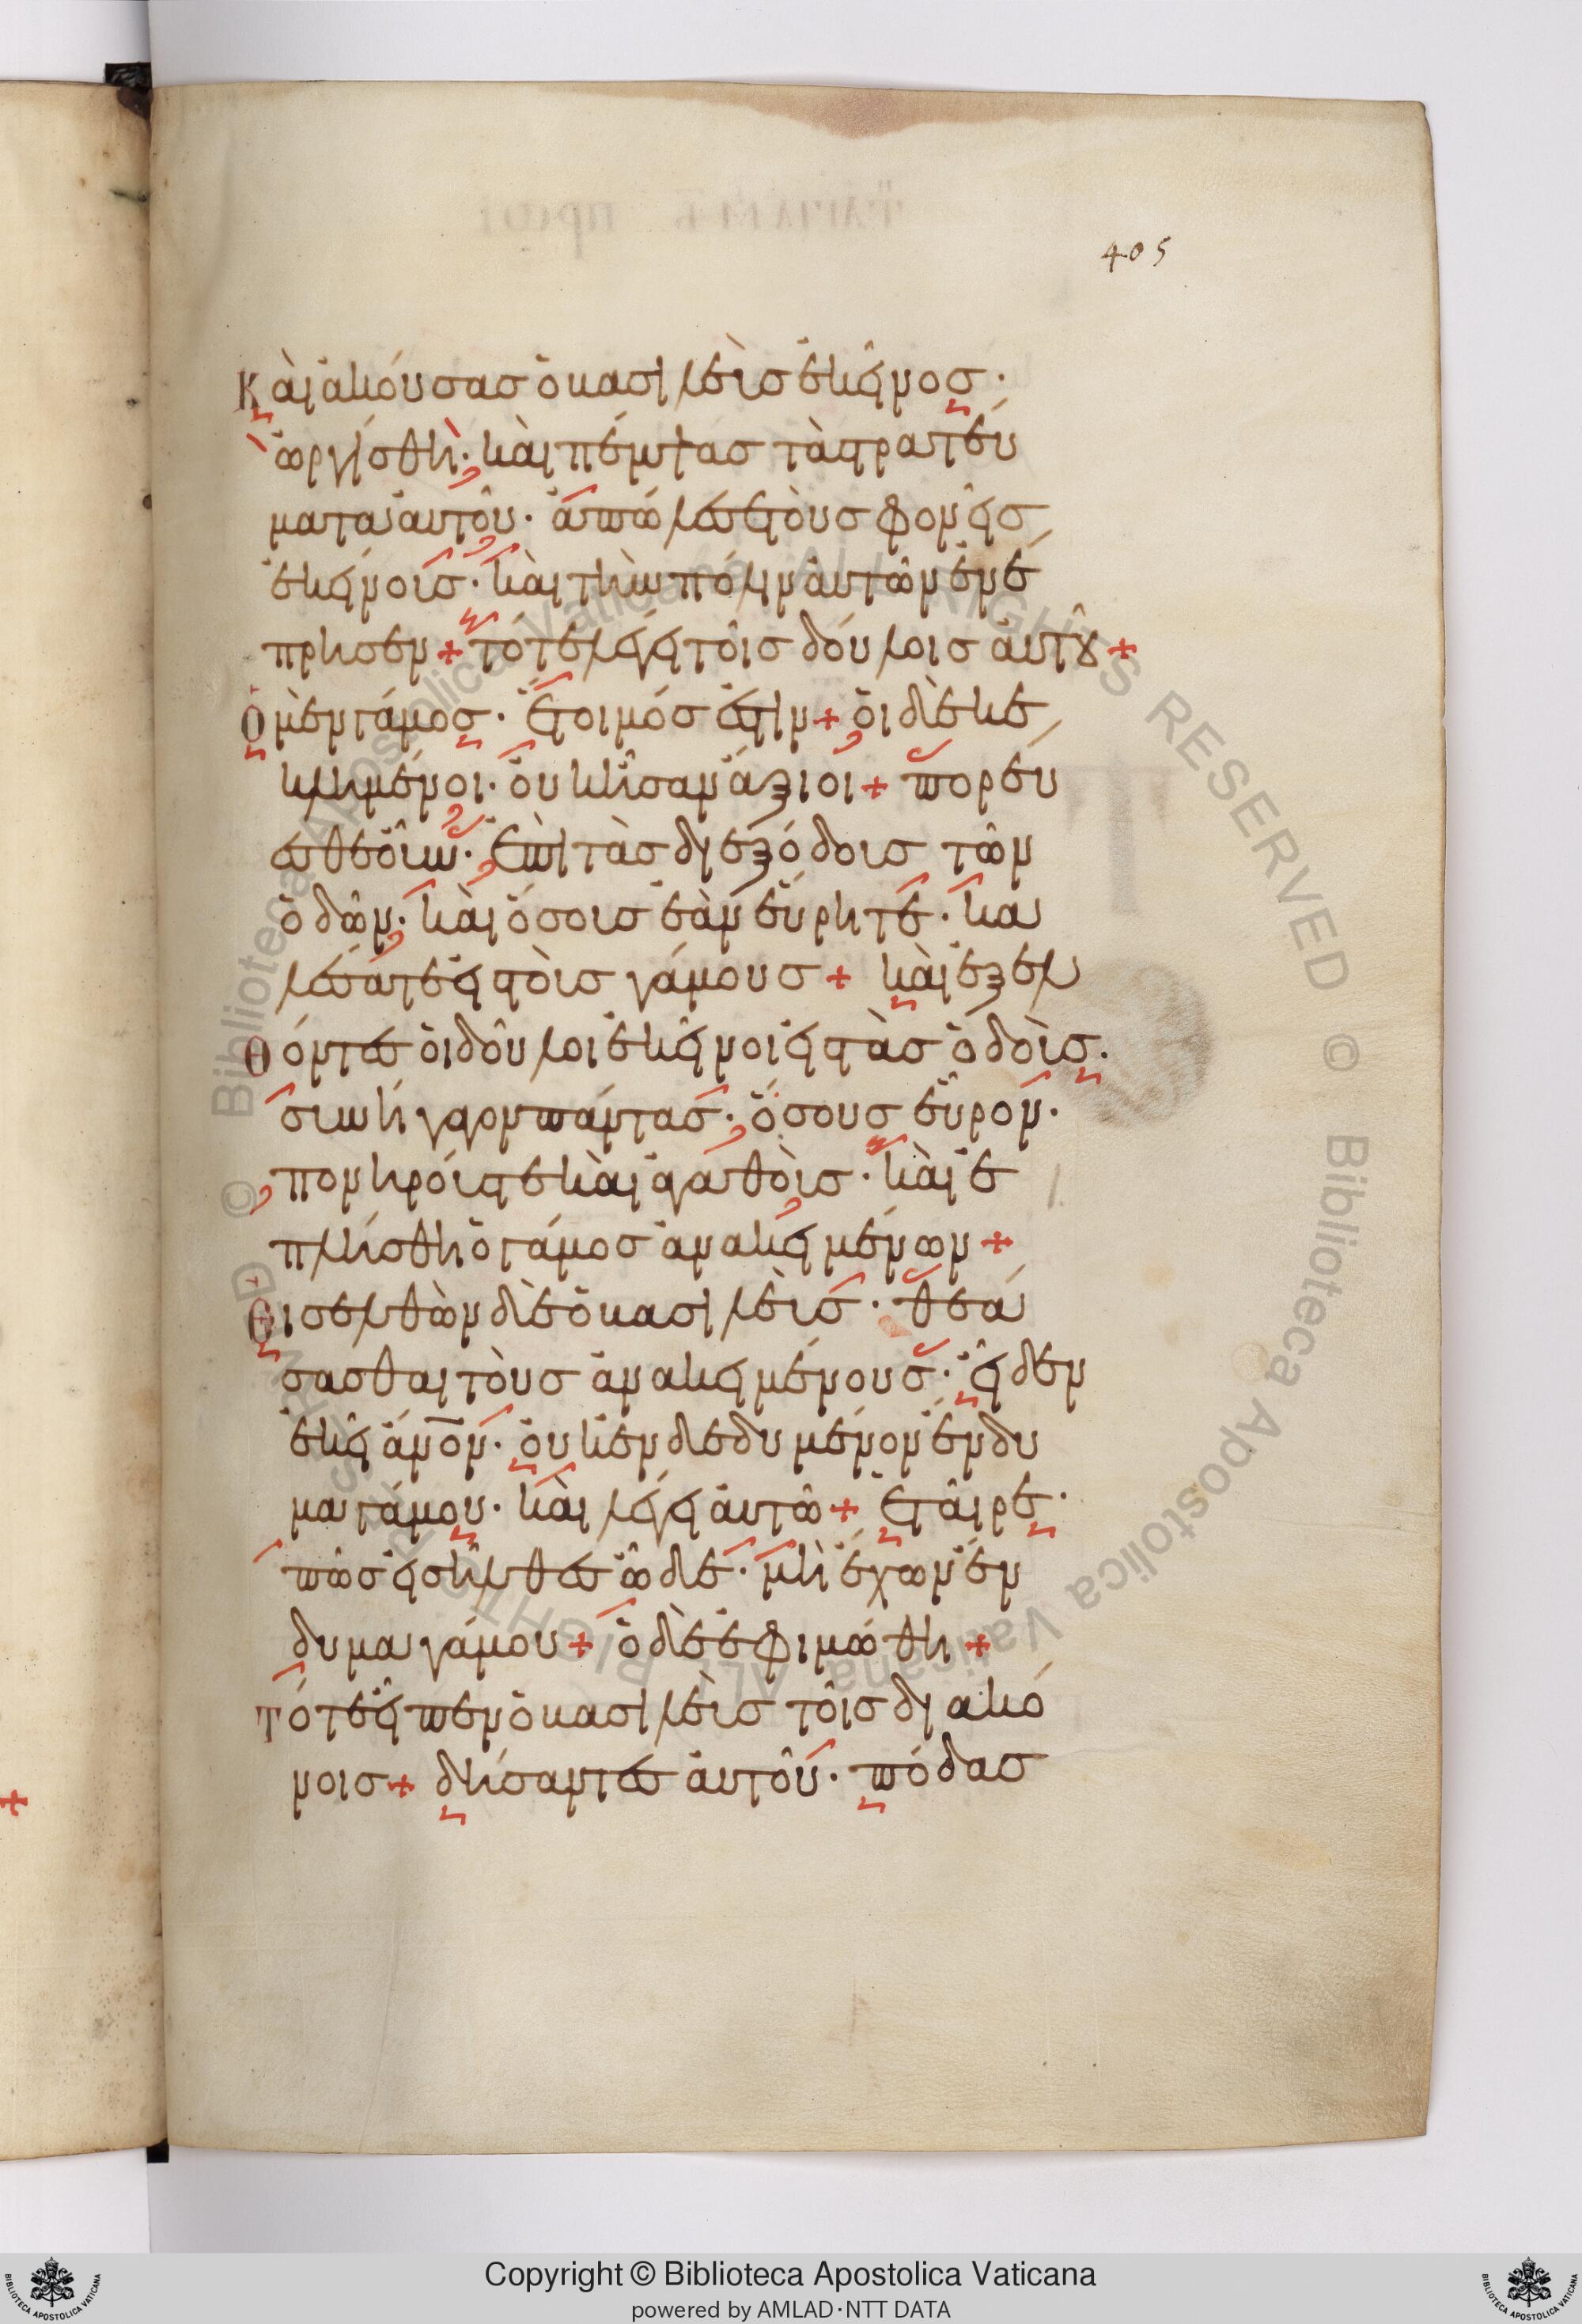 405
Κὰι ἀκόυσασ ὁ βασιλὲυσ ἐκεῖνοσ·
ὠργίσθη· κὰι πέμψασ τὰ στρατεύ
ματα ἀυτοῦ· ἀπώλεσε τοὺσ φονεῖσ
ἐκείνουσ· κὰι τὴν πόλιν ἀυτῶν ἐνέ
πρησεν + τότε λέγει τοῖσ δούλοισ ἀυτοῦ +
Ὁ μὲν γάμοσ· ἕτοιμόσ ἐστιν + ὁι δὲ κε
κλημένοι· ὀυκ ἦσαν ἄξιοι + πορεύ
εσθε ὀῦν· ἐπὶ τὰσ διεξόδουσ τῶν
ὁδῶν· κὰι ὅσουσ ἐὰν ἕυρητε· κα
λέσατε εἰσ τοὺσ γάμουσ + κὰι ἐξελ
θόντεσ ὁι δοῦλοι ἐκεῖνοι εἰσ τὰσ ὁδοὺσ·
συνήγαγον πάντασ· ὅσουσ ἕυρον·
πονηρούσ τε κὰι ἀγαθοὺσ· κὰι ἐ
πλήσθη ὁ γάμοσ ἀνακειμένων +
Εἰσελθὼν δὲ ὁ βασιλὲυσ· θεά
σασθαι τοὺσ ἀνακειμένουσ· εἶδεν
ἐκεῖ ἄνον· ὀυκ ἐνδεδυμένον ἔνδυ
μα γάμου· κὰι λέγει ἀυτῶ + ἑταῖρε·
πῶσ εἰσῆλθεσ ὧδε· μὴ ἔχων ἔν
δυμα γάμου + ὁ δὲ ἐφιμώθη +
Τότε εἶπεν ὁ βασιλὲυσ τοῖσ διακό
νοισ + δήσαντεσ ἀυτοῦ· πόδασ
Copyright © Biblioteca Apostolica Vaticana
powered by AMLAD·NTT DATA